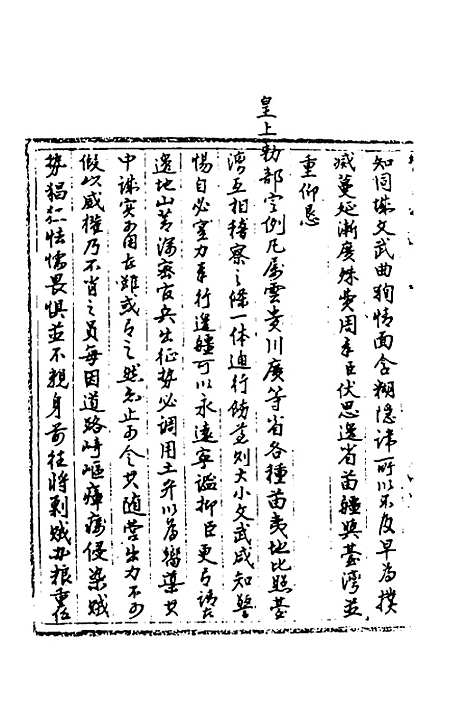 知同城文武曲狥情面含糊隐諱所以不及早為撲
滅蔓延漸廣殊費周章臣伏思邊省苗疆與臺灣並
重仰懇
皇上勅部定例凡屬雲貴川廣等省各種苗夷地比照臺
灣互相稽察之條一体通行飭遵则大小文武咸知警
惕自必实力奉行邊疆可以永遠寧謐抑臣更有請者
邊地山箐深密官兵出征势必調用土弁以為嚮導其
中誅实用在雖或有之然亦止可令其随營出力不可
假以威權乃不肖之員每因道路崎嶇瘴癘侵染贼
势猖獗怯懦畏惧並不親身前往將剿贼办粮重任